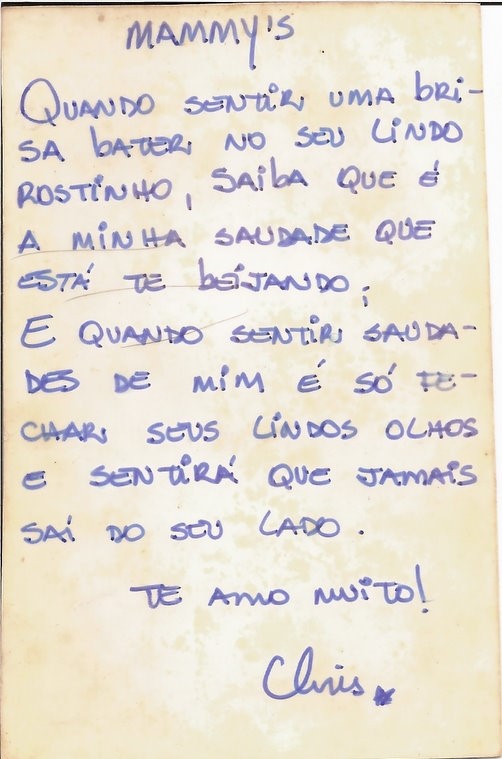 MAMMY'S
QUANDO SENTIR UMA BRI-
SA BATER NO SEU LINDO
ROSTINHO, SAIBA QUE É
A MINHA SAUDADE QUE
ESTÁ TE BEIJANDO;
E QUANDO SENTIR SAUDA-
DES DE MIM É SÓ FE-
CHAR SEUS LINDOS OLHOS
E SENTIRÁ QUE JAMAIS
SAÍ DO SEU LADO.
TE AMO MUITO!
Chris